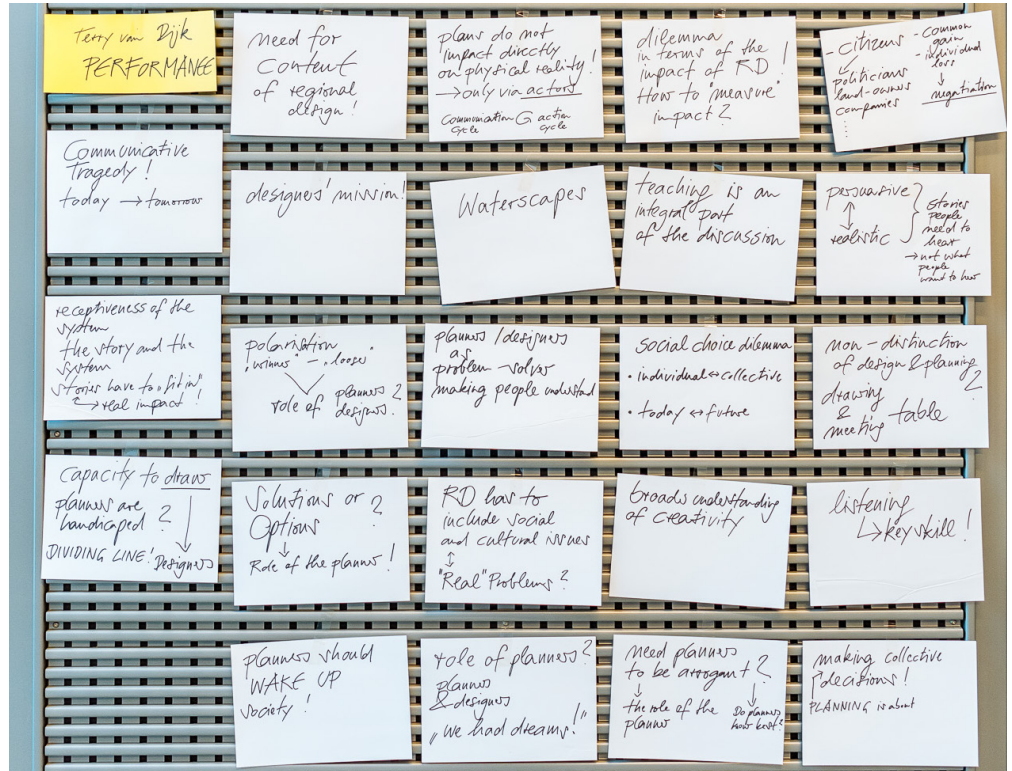 Terry van Dijk
PERFORMANCE
need for
content
of regional
design!
plans do not
impact directly
on physical reality!
→ only via actors
communication G action
cycle cycle
dilemma
in terms of the
impact of RD!
How to "measure"
impact?
- citizens
politicians
land-owners
companies
....
- common
gain
- individual
loss
↓
negotiation
Communicative
Tragedy!
today → tomorrow
designers' mission!
Waterscapes
teaching is an
integral part
of the discussion
persuasive
↕
realistic
Stories
people
need to
hear
→ not what
people
want to hear
receptiveness of the
system
the story and the
system
stories have to "fit in"
↳ real impact!
polarisation
"winner" – "looser"
role of planners?
designers?
planners / designers
as
problem-solver
making people understand
social choice dilemma
• individual ↔ collective
• today ↔ future
non-distinction
of design & planning?
drawing
&
meeting table
capacity to draw
planners are
handicaped?
DIVIDING LINE!
Designers
Solutions or
Options?
↓
Role of the planner!
RD has to
include social
and cultural issues
↕
"Real" Problems?
broader understanding
of creativity
listening
↳ key skill!
planners should
WAKE UP
society!
role of planners?
planners
& designers
"we had dreams!"
need planners
to be arrogant?
↓
the role of the
planner
↓
Do planners
know best?
making collective
decisions!
PLANNING is about